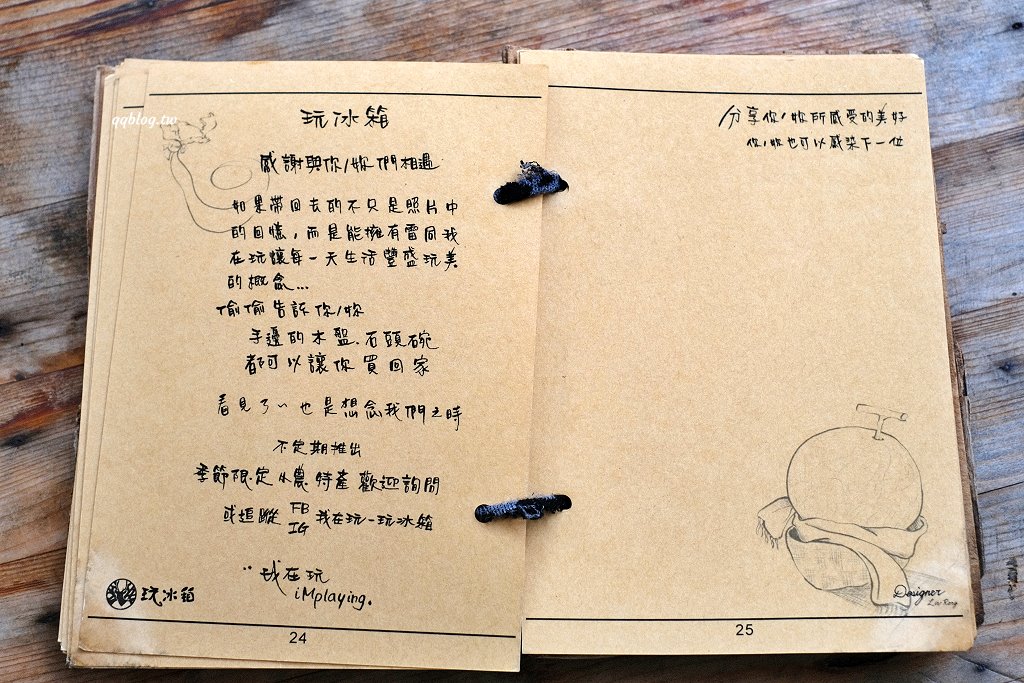 玩冰箱
qqblog.tw
感謝與你/妳們相遇
如果帶回去的不只是照片中
的回憶，而是能擁有雷同我
在玩讓每一天生活豐盛玩美
的概念...
偷偷告訴你/妳
手邊的木盤、石頭碗
都可以讓你買回家
看見了~也是想念我們之時
不定期推出
季節限定小農特產歡迎詢問
或追蹤 FB IG 我在玩-玩冰箱
"我在玩
iMplaying.
玩冰箱
24
分享你/妳所感受的美好
你/妳也可以感染下一位
Designer
25